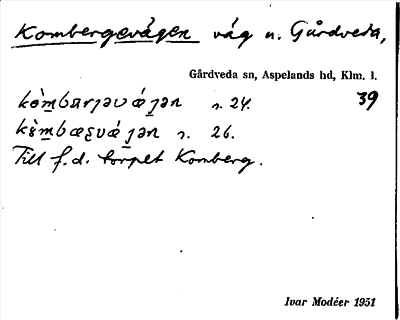 Kombergevägen väg n. Gårdveda,
Gårdveda sn, Aspelands hd, Klm. l.
s. 24. 39
s. 26.
Till f.d. torpet Komberg.
Ivar Modéer 1951